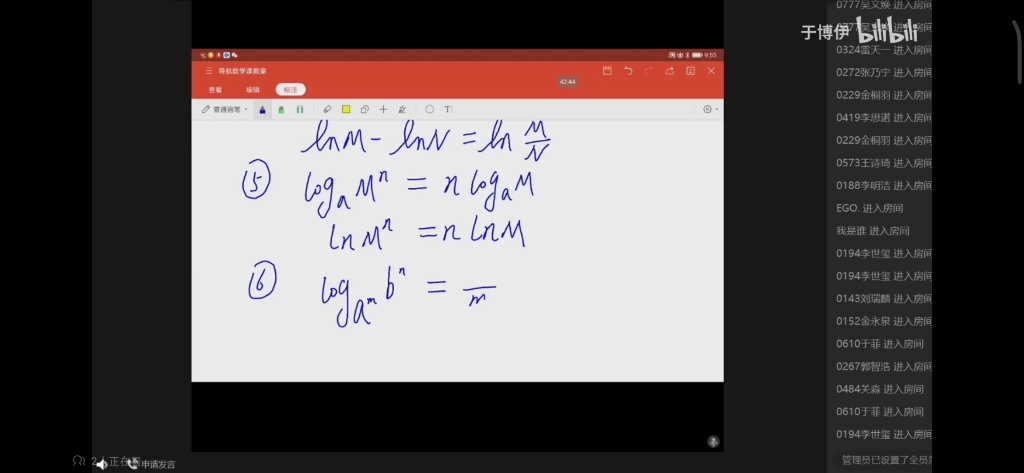 0777吴文焕 进入房间
于博伊 bilibili
0324雷天一 进入房间
9:55
导航数学课教案
42:44
0272张乃宁 进入房间
查看 编辑 标注
0229金桐羽 进入房间
普通画笔
0419李思诺 进入房间
lnM - lnN = ln M/N
0229金桐羽 进入房间
0573王诗琦 进入房间
⑤ logₐMⁿ = n logₐM
0188李明洁 进入房间
EGO. 进入房间
lnMⁿ = n lnM
我是谁 进入房间
0194李世玺 进入房间
0194李世玺 进入房间
⑥ log_{a^m} bⁿ = —/m
0143刘瑞麟 进入房间
0152金永泉 进入房间
0610于菲 进入房间
0267郭智浩 进入房间
0484关淼 进入房间
0610于菲 进入房间
0194李世玺 进入房间
申请发言
管理员已设置了全员